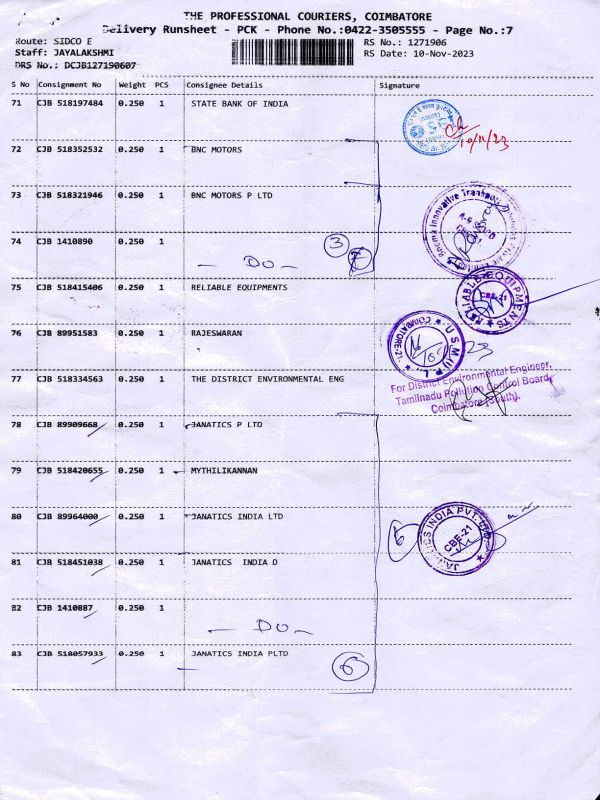 THE PROFESSIONAL COURIERS, COIMBATORE
Delivery Runsheet - PCK - Phone No.:0422-3505555 - Page No.:7
Route: SIDCO E
RS No.: 1271906
Staff: JAYALAKSHMI
RS Date: 10-Nov-2023
DRS No.: DCJB127190607
S No Consignment No Weight PCS Consignee Details Signature
71 CJB 518197484 0.250 1 STATE BANK OF INDIA
10/11/23
72 CJB 518352532 0.250 1 BNC MOTORS
73 CJB 518321946 0.250 1 BNC MOTORS P LTD
74 CJB 1410890 0.250 1
- DO - 3 7
75 CJB 518415406 0.250 1 RELIABLE EQUIPMENTS
RELIABLE EQUIPMENTS
CBE-21
76 CJB 89951583 0.250 1 RAJESWARAN
U S M (I) P. L.
COIMBATORE-21
77 CJB 518334563 0.250 1 THE DISTRICT ENVIRONMENTAL ENG
For District Environmental Engineer,
Tamilnadu Pollution Control Board,
Coimbatore (South).
78 CJB 89909668 0.250 1 JANATICS P LTD
79 CJB 518420655 0.250 1 MYTHILIKANNAN
80 CJB 89964000 0.250 1 JANATICS INDIA LTD
JANATICS INDIA PVT. LTD
CBE-21
81 CJB 518451038 0.250 1 JANATICS INDIA D
82 CJB 1410887 0.250 1
- DO -
83 CJB 518057933 0.250 1 JANATICS INDIA PLTD
6